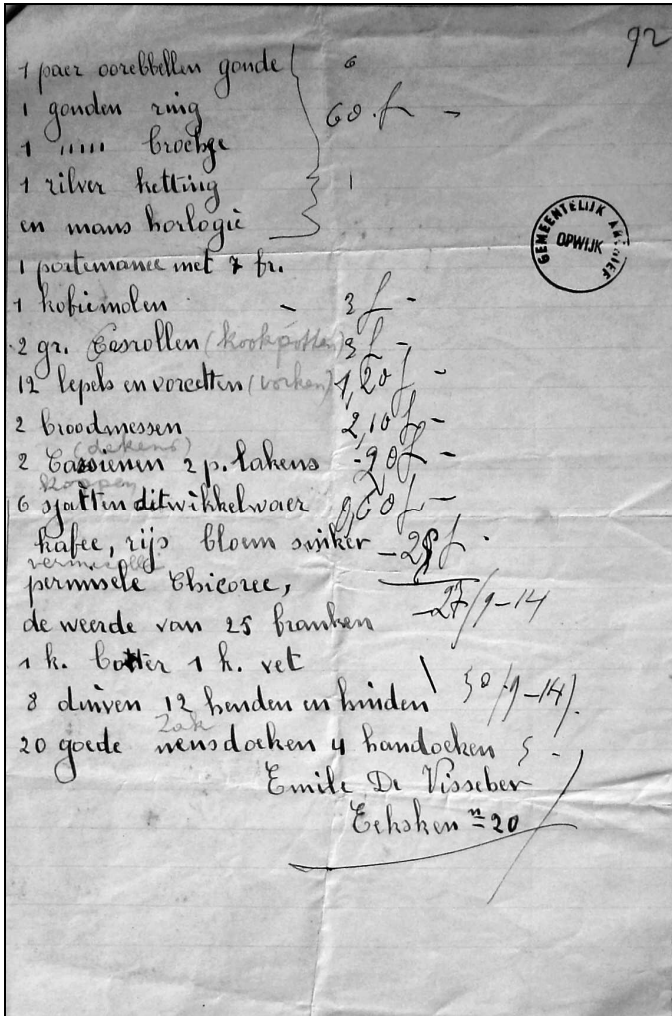 92
1 paer oorebbellen goude 6
1 gouden ring 60 f -
1 ''''' brochge
1 zilver ketting 1
en mans horlogie
GEMEENTELIJK ARCHIEF OPWIJK
1 portemanee met 7 fr.
1 kofiemolen - 3 f -
2 gr. Casrollen (kookpotten) 3 f -
12 lepels en vorcetten (vorken) 1,20 f -
2 broodmessen 2,10 f -
(dekens)
2 2 p. lakens -90 f -
Koppen
6 sjatten ditwikkelwaer f -
kafee, rijs bloem suiker - 28 f.
vermicelle
permisele Chicoree,
de weerde van 25 franken -27/9-14
1 k. botter 1 k. vet
8 duiven 12 henden en hinden 30/9-14).
Zak
20 goede neusdoeken 4 handoeken 5 -
Emile De Visscher
Eeksken n= 20